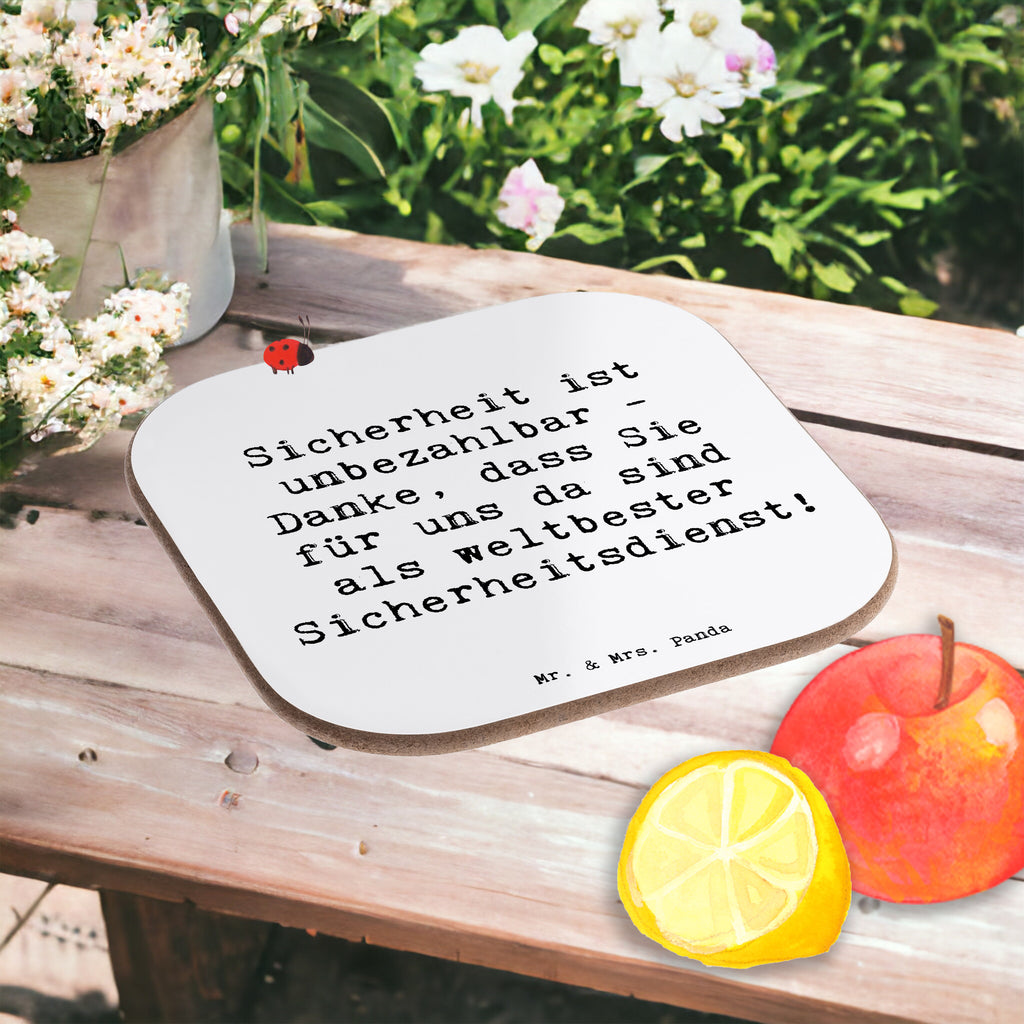 Sicherheit ist
unbezahlbar -
Danke, dass Sie
für uns da sind
als weltbester
Sicherheitsdienst!
Mr. & Mrs. Panda